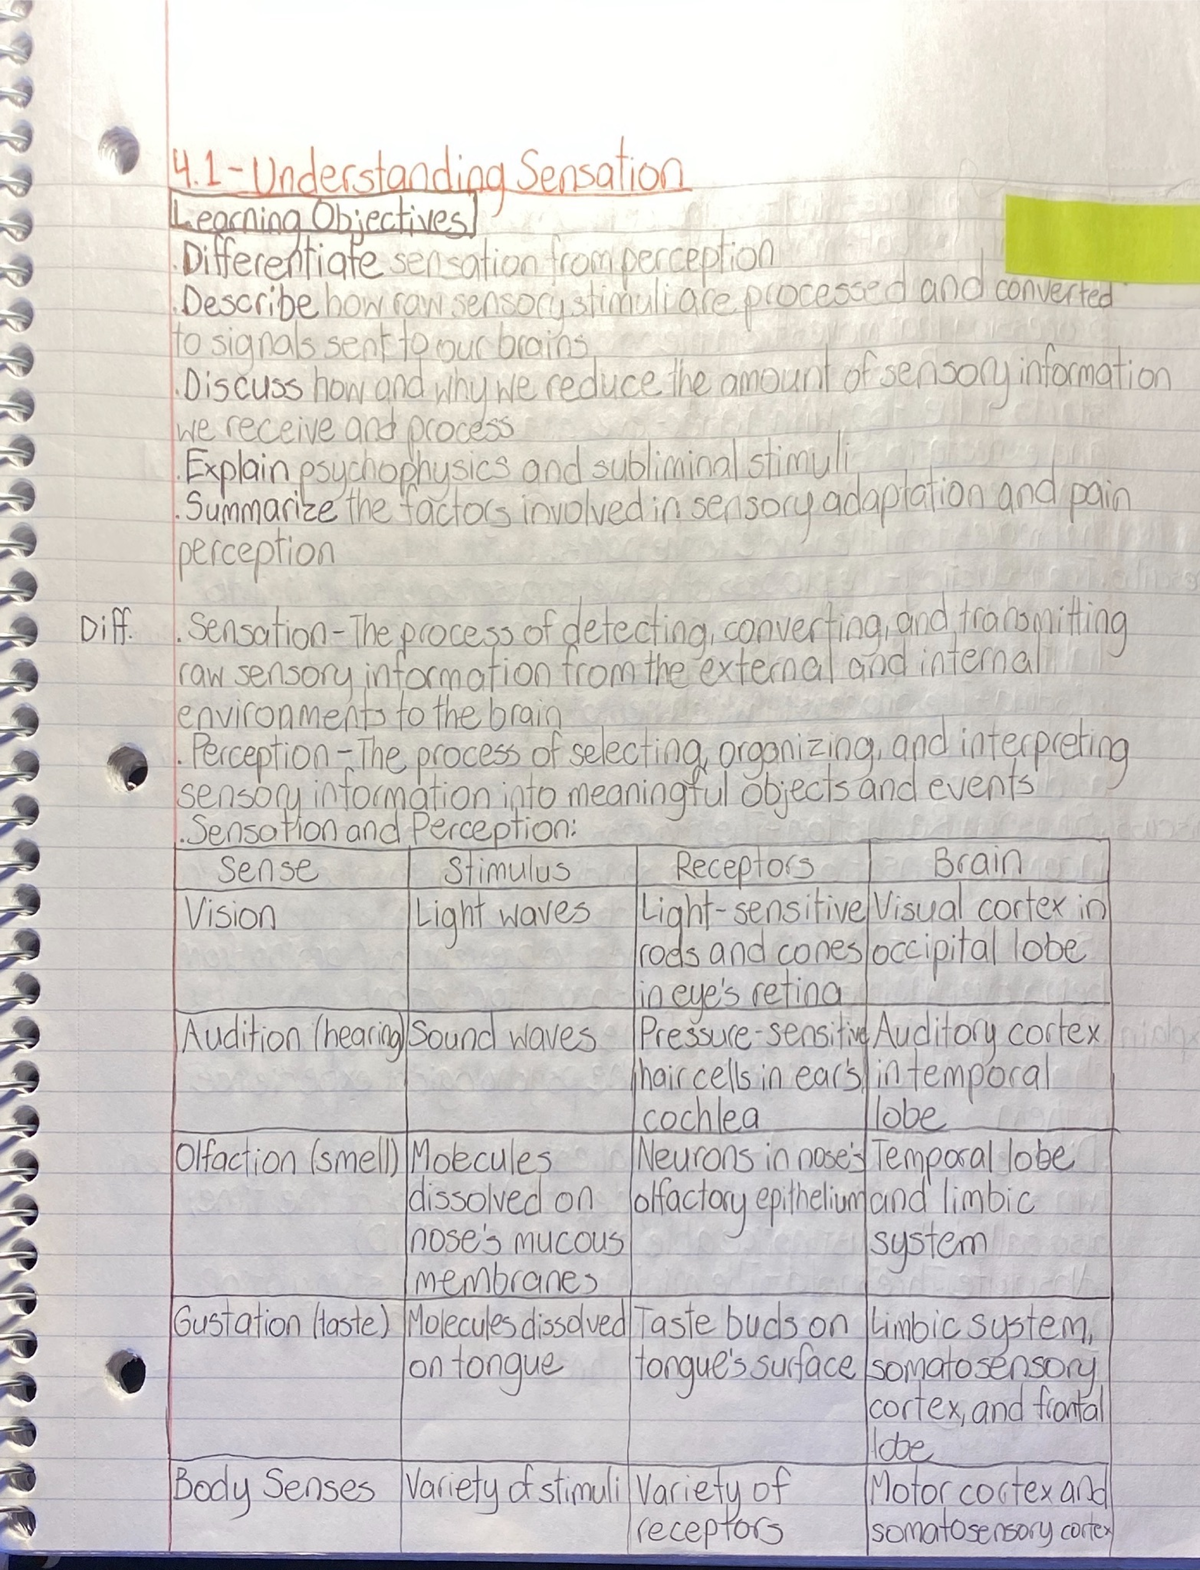 4.1-Understanding Sensation
Learning Objectives
.Differentiate sensation from perception
.Describe how raw sensory stimuli are processed and converted
to signals sent to our brains
.Discuss how and why we reduce the amount of sensory information
we receive and process
.Explain psychophysics and subliminal stimuli
.Summarize the factors involved in sensory adaptation and pain
perception
Diff. .Sensation-The process of detecting, converting, and transmitting
raw sensory information from the external and internal
environments to the brain
.Perception-The process of selecting, organizing, and interpreting
sensory information into meaningful objects and events
.Sensation and Perception:
Sense Stimulus Receptors Brain
Vision Light waves Light-sensitive Visual cortex in
rods and cones occipital lobe
in eye's retina
Audition (hearing) Sound waves Pressure-sensitive Auditory cortex
hair cells in ear's in temporal
cochlea lobe
Olfaction (smell) Molecules Neurons in nose's Temporal lobe
dissolved on olfactory epithelium and limbic
nose's mucous system
membranes
Gustation (taste) Molecules dissolved Taste buds on Limbic system,
on tongue tongue's surface somatosensory
cortex, and frontal
lobe
Body Senses Variety of stimuli Variety of Motor cortex and
receptors somatosensory cortex